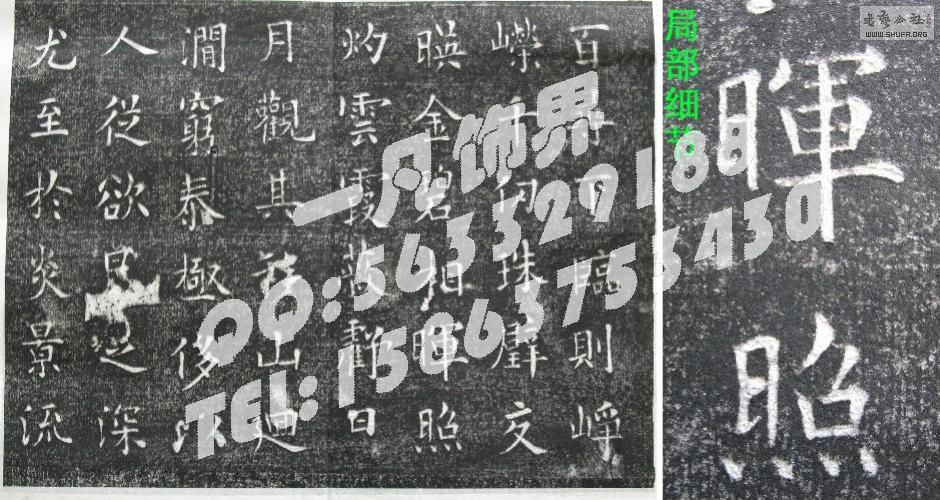 百尋下臨則崢
嶸千仞珠璧交
暎金碧相暉照
灼雲霞蔽虧日
月觀其移山迴
澗窮泰極侈以
人從欲良足深
尤至於炎景流
一凡饰界
QQ:563329188
TEL:15863753430
局部细节
暉照
书艺公社
WWW.SHUFA.ORG